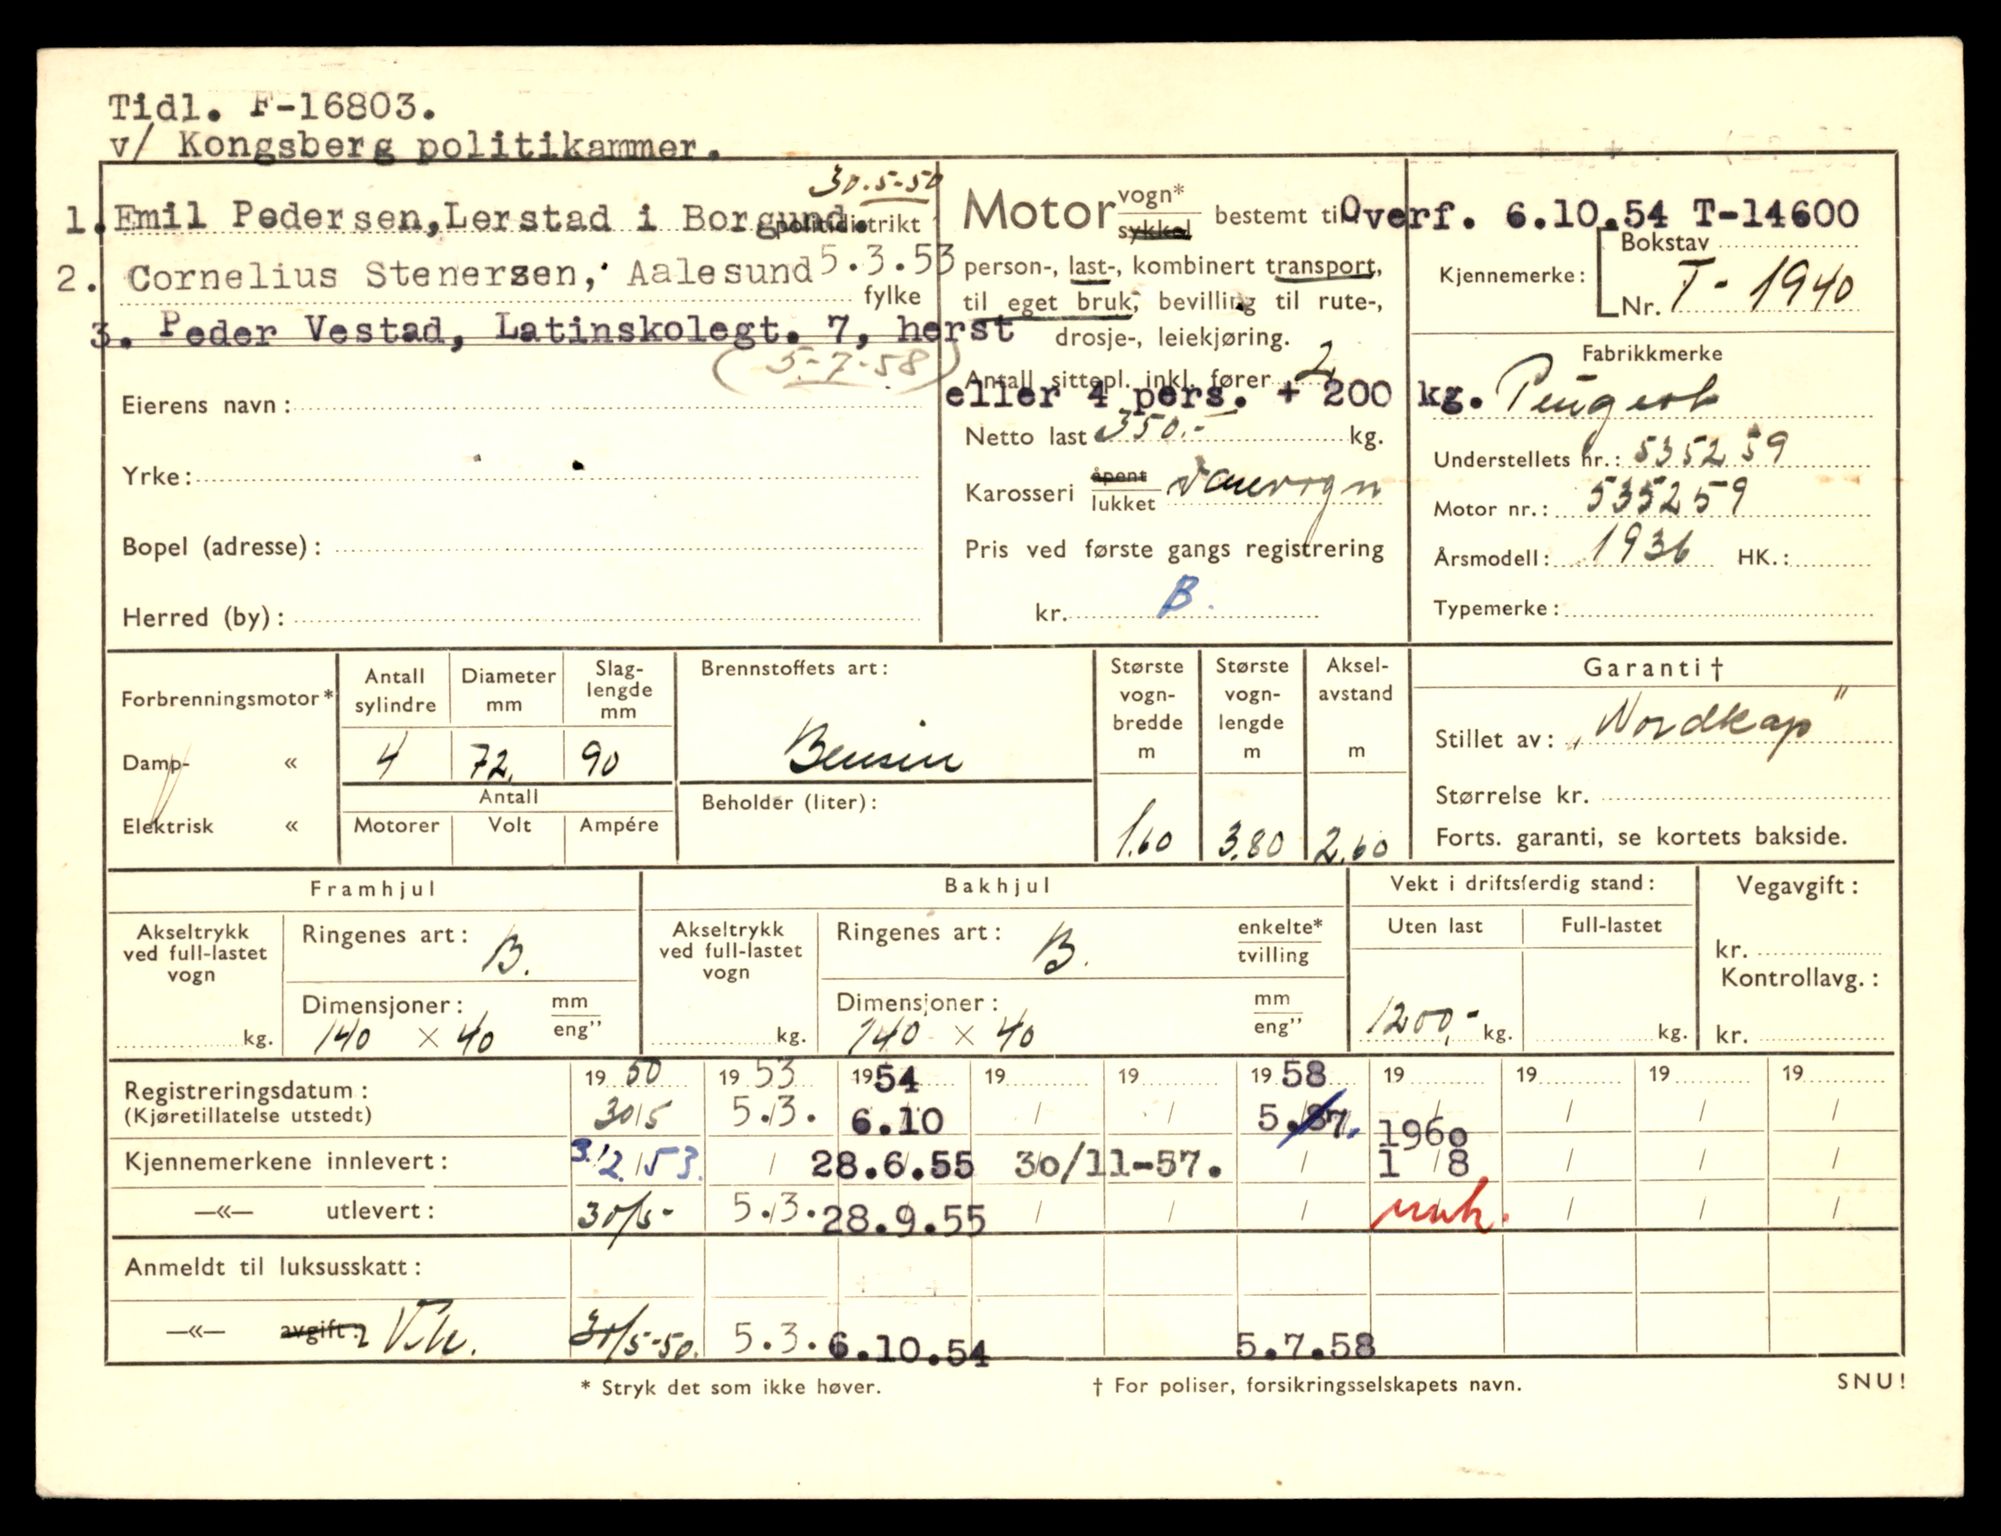 Tidl. F-16803.
v/ Kongsberg politikammer.
30.5-50
1. Emil Pedersen, Lerstad i Borgund.
politidistrikt
2. Cornelius Stenersen, Aalesund 5.3.53
fylke
3. Peder Vestad, Latinskolegt. 7, herst
(5-7-58)
Eierens navn:
Yrke:
Bopel (adresse):
Herred (by):
Motor vogn* sykkel bestemt til
person-, last-, kombinert transport,
til eget bruk, bevilling til rute-,
drosje-, leiekjøring.
Antall sittepl. inkl. fører 2
eller 4 pers. + 200 kg.
Netto last 350.- kg.
Karosseri åpent lukket Varevogn
Pris ved første gangs registrering
kr. B.
Overf. 6.10.54 T-14600
Bokstav
Kjennemerke:
Nr. T-1940
Fabrikkmerke
Peugeot
Understellets nr.: 535259
Motor nr.: 535259
Årsmodell: 1936 HK.:
Typemerke:
Forbrenningsmotor*
Damp- «
Elektrisk «
Antall sylindre
4
Diameter mm
72
Slag-
lengde
mm
90
Antall
Motorer Volt Ampére
Brennstoffets art:
Bensin
Beholder (liter):
Største
vogn-
bredde
m
1.60
Største
vogn-
lengde
m
3.80
Aksel-
avstand
m
2.60
Garanti †
Stillet av: „Nordkap"
Størrelse kr.
Forts. garanti, se kortets bakside.
Framhjul
Akseltrykk
ved full-lastet
vogn
kg.
Ringenes art: B.
Dimensjoner: mm eng”
140 × 40
Bakhjul
Akseltrykk
ved full-lastet
vogn
kg.
Ringenes art: B.
enkelte*
tvilling
Dimensjoner: mm eng”
140 × 40
Vekt i driftsferdig stand:
Uten last Full-lastet
1200,- kg. kg.
Vegavgift:
kr.
Kontrollavg.:
kr.
Registreringsdatum: 19 50 19 53 19 54 19 19 19 58 19 19 19 19
(Kjøretillatelse utstedt) 30/5 5.3. 6.10 / / 5.87. 1960 / / /
Kjennemerkene innlevert: 3/12 53. / 28.6.55 30/11-57. / 1 8 / / /
—«— utlevert: 30/5- 5.3. 28.9.55 / / / / / /
Anmeldt til luksusskatt:
—«— avgift: 30/5-50. 5.3. 6.10.54 5.7.58
* Stryk det som ikke høver.
† For poliser, forsikringsselskapets navn.
SNU!